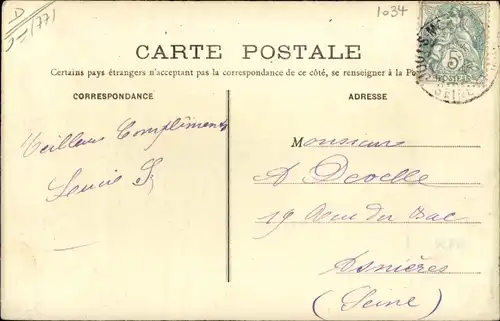 D
1034
5
POSTES
SEINE
CARTE POSTALE
Certains pays étrangers n'acceptent pas la correspondance de ce côté, se renseigner à la
CORRESPONDANCE
ADRESSE
Meilleurs Compliments
Monsieur
A
19 Rue du Bac
Asnières
(Seine)